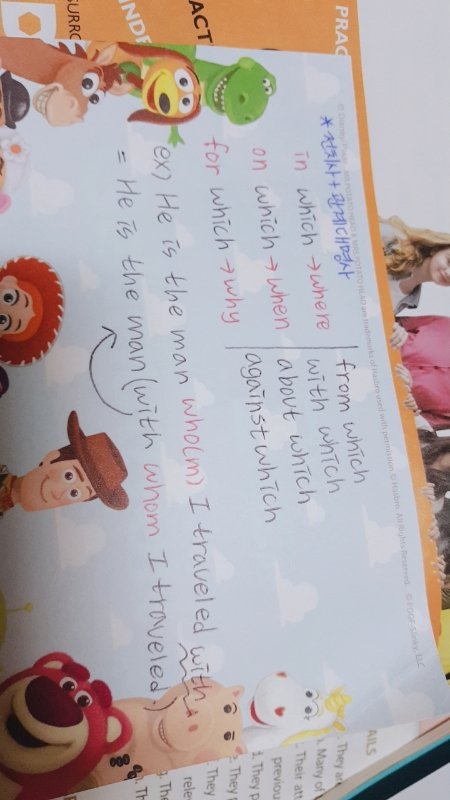 PRAC
ACT
INDE
SURRO
© Disney/Pixar. MR. POTATO HEAD & MRS. POTATO HEAD are trademarks of Hasbro used with permission © Hasbro. All Rights Reserved. © POOF-Slinky, LLC
* 전치사 + 관계대명사
in which → where | from which
on which → when | with which
for which → why | about which
against which
ex) He is the man who(m) I traveled with
= He is the man (with whom I traveled)
AILS
They
1. Many of
Their att
previou
They p
They
They
rele
Th